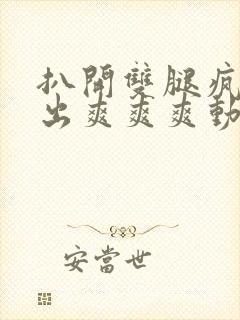 扒開雙腿瘋
出爽爽爽動
安當世